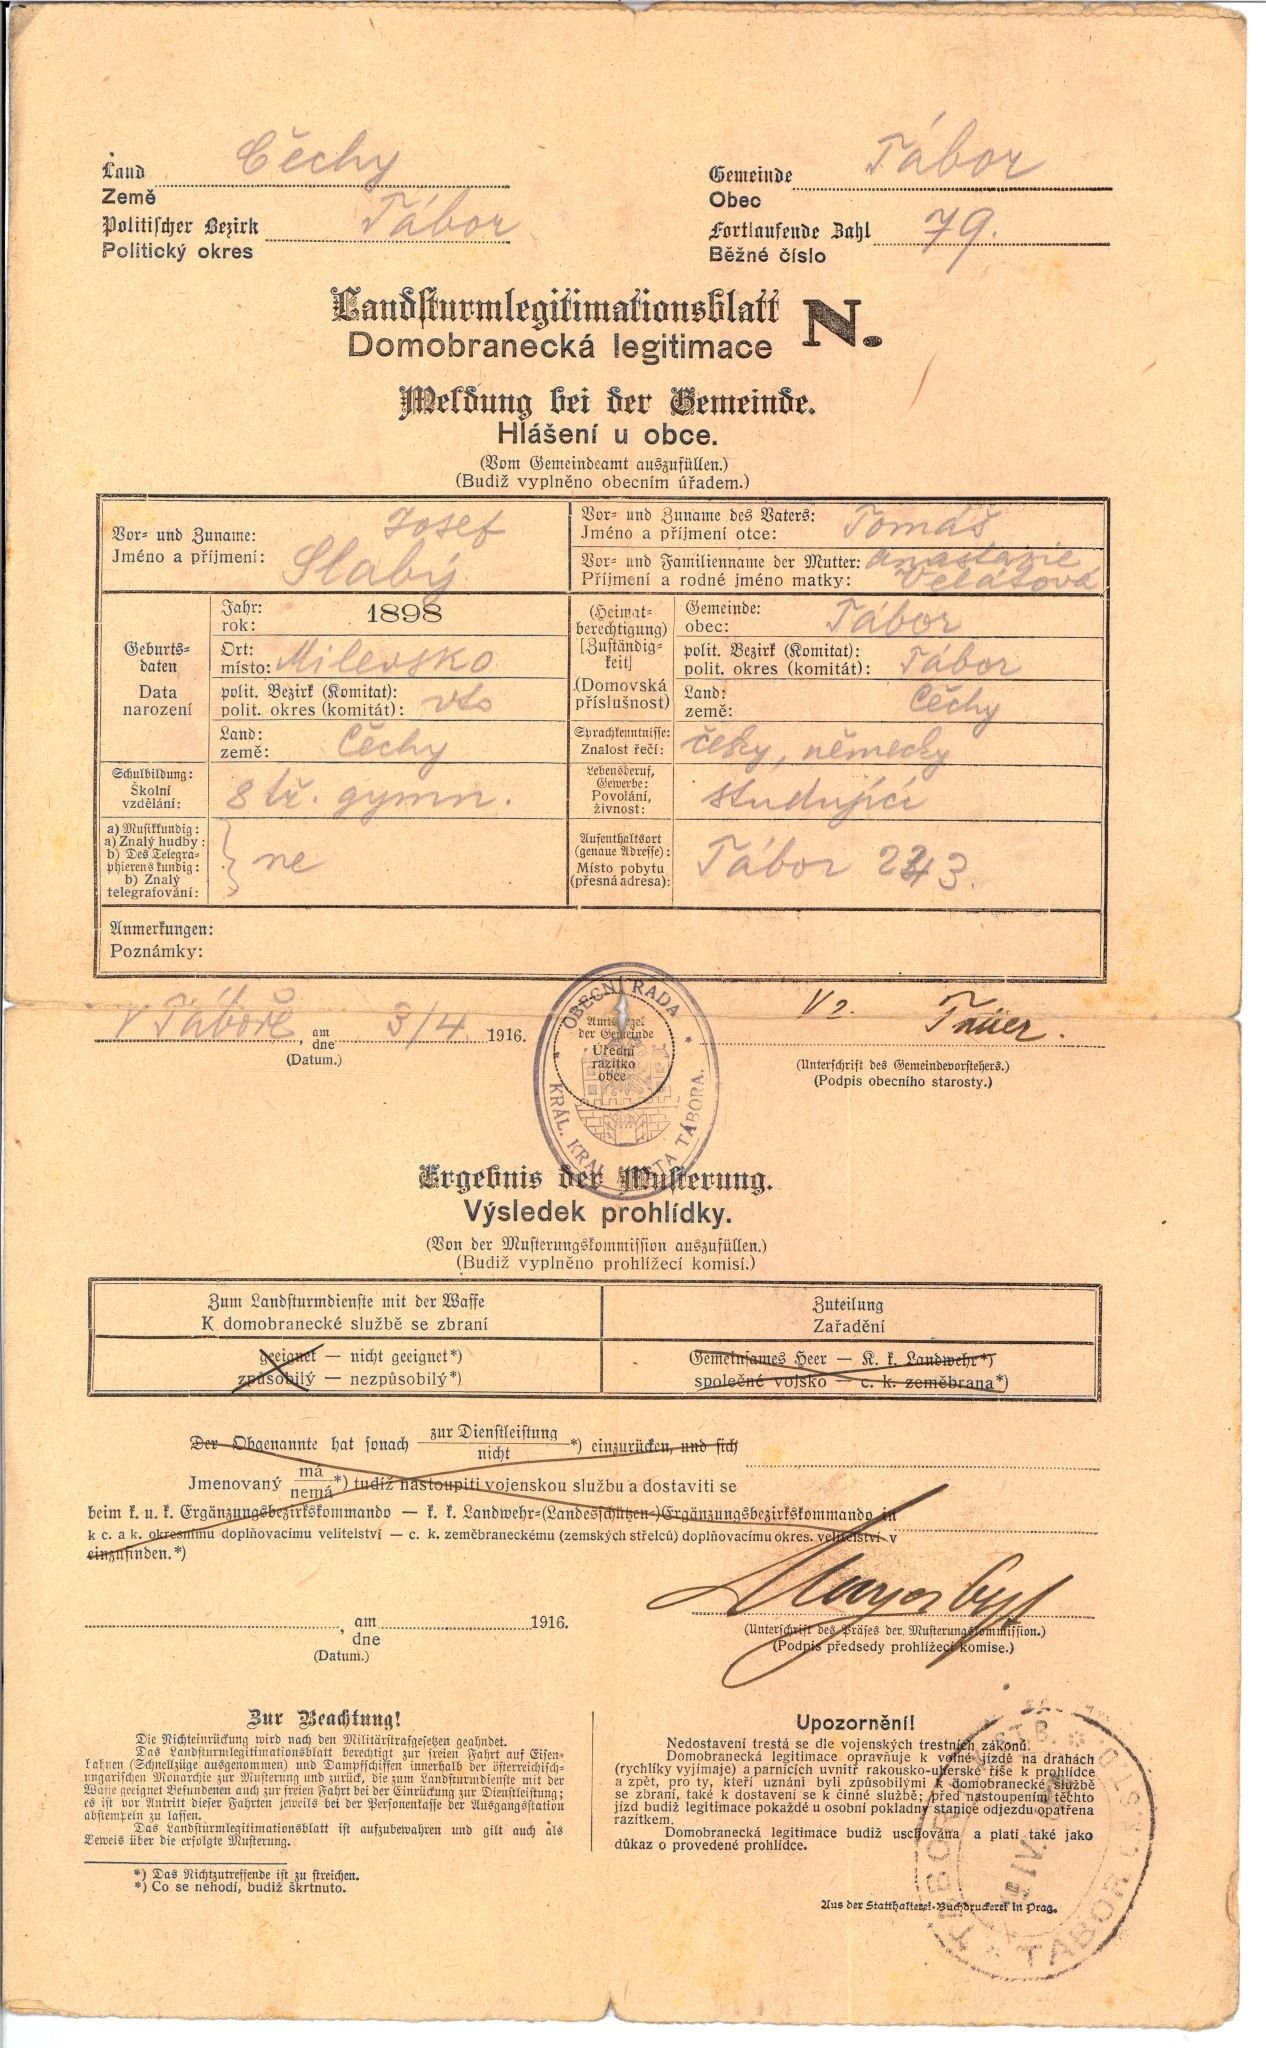 Land Čechy
Země
Politischer Bezirk Tábor
Politický okres
Gemeinde Tábor
Obec
Fortlaufende Zahl 79.
Běžné číslo
Landsturmlegitimationsblatt N.
Domobranecká legitimace
Meldung bei der Gemeinde.
Hlášení u obce.
(Vom Gemeindeamt auszufüllen.)
(Budiž vyplněno obecním úřadem.)
Vor- und Zuname: Josef
Jméno a příjmení: Slabý
Vor- und Zuname des Vaters: Tomáš
Jméno a příjmení otce:
Vor- und Familienname der Mutter: Anastazie
Příjmení a rodné jméno matky:
Geburts-
daten
Data
narození
Jahr:
rok: 1898
Ort:
místo: Milevsko
polit. Bezirk (Komitat):
polit. okres (komitát): vto
Land:
země: Čechy
(Heimat-
berechtigung)
[Zuständig-
keit]
(Domovská
příslušnost)
Gemeinde:
obec: Tábor
polit. Bezirk (Komitat):
polit. okres (komitát): Tábor
Land:
země: Čechy
Sprachkenntnisse:
Znalost řečí: česky, německy
Schulbildung:
Školní
vzdělání: 8 tř. gymn.
Lebensberuf,
Gewerbe:
Povolání,
živnost: studující
a) Musikkundig:
a) Znalý hudby:
b) Des Telegra-
phierens kundig:
b) Znalý
telegrafování: ne
Aufenthaltsort
(genaue Adresse):
Místo pobytu
(přesná adresa): Tábor 243.
Anmerkungen:
Poznámky:
V Táboře, am 3/4. 1916.
dne
(Datum.)
OBECNÍ RADA
KRÁL. KRAJ. MĚSTA TÁBORA.
Amtssiegel
der Gemeinde
Úřední
razítko
obce
(Unterschrift des Gemeindevorstehers.)
(Podpis obecního starosty.)
Ergebnis der Musterung.
Výsledek prohlídky.
(Von der Musterungskommission auszufüllen.)
(Budiž vyplněno prohlížecí komisí.)
Zum Landsturmdienste mit der Waffe
K domobranecké službě se zbraní
Zuteilung
Zařadění
geeignet — nicht geeignet*)
způsobilý — nezpůsobilý*)
Gemeinsames Heer — K. k. Landwehr*)
společné vojsko — c. k. zeměbrana*)
Der Obgenannte hat sonach zur Dienstleistung
nicht *) einzurücken, und sich
Jmenovaný má
nemá *) tudíž nastoupiti vojenskou službu a dostaviti se
beim k. u. k. Ergänzungsbezirkskommando — k. k. Landwehr-(Landesschützen-)Ergänzungsbezirkskommando in
k c. a k. okresnímu doplňovacímu velitelství — c. k. zeměbraneckému (zemských střelců) doplňovacímu okres. velitelství v
einzufinden.*)
, am 1916.
dne
(Datum.)
(Unterschrift des Präses der Musterungskommission.)
(Podpis předsedy prohlížecí komise.)
Zur Beachtung!
Die Nichteinrückung wird nach den Militärstrafgesetzen geahndet.
Das Landsturmlegitimationsblatt berechtigt zur freien Fahrt auf Eisen-
bahnen (Schnellzüge ausgenommen) und Dampfschiffen innerhalb der österreichisch-
ungarischen Monarchie zur Musterung und zurück, die zum Landsturmdienste mit der
Waffe geeignet Befundenen auch zur freien Fahrt bei der Einrückung zur Dienstleistung;
es ist vor Antritt dieser Fahrten jeweils bei der Personenkasse der Ausgangsstation
abstempeln zu lassen.
Das Landsturmlegitimationsblatt ist aufzubewahren und gilt auch als
Beweis über die erfolgte Musterung.
*) Das Nichtzutreffende ist zu streichen.
*) Co se nehodí, budiž škrtnuto.
Upozornění!
Nedostavení trestá se dle vojenských trestních zákonů.
Domobranecká legitimace opravňuje k volné jízdě na drahách
(rychlíky vyjímaje) a parnících uvnitř rakousko-uherské říše k prohlídce
a zpět, pro ty, kteří uznáni byli způsobilými k domobranecké službě
se zbraní, také k dostavení se k činné službě; před nastoupením těchto
jízd budiž legitimace pokaždé u osobní pokladny stanice odjezdu opatřena
razítkem.
Domobranecká legitimace budiž uschována a platí také jako
důkaz o provedené prohlídce.
Aus der Statthalterei-Buchdruckerei in Prag.